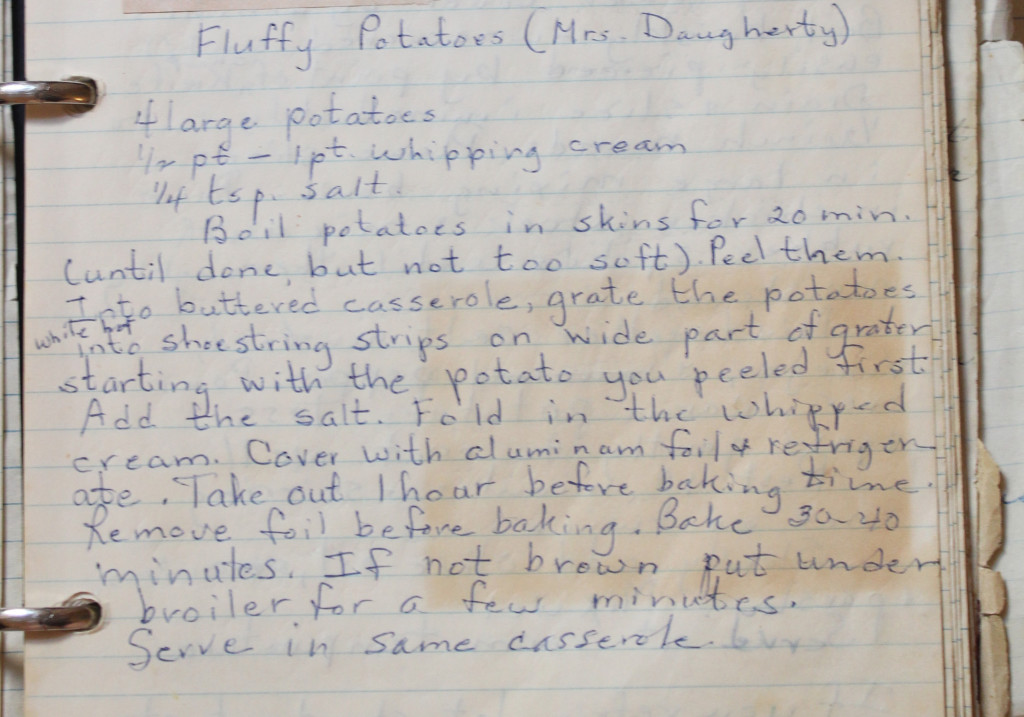 Fluffy Potatoes (Mrs. Daugherty)
4 large potatoes
1/2 pt - 1 pt. whipping cream
1/4 tsp. salt.
Boil potatoes in skins for 20 min.
(until done, but not too soft). Peel them.
Into buttered casserole, grate the potatoes
while hot
into shoestring strips on wide part of grater
starting with the potato you peeled first
Add the salt. Fold in the whipped
cream. Cover with aluminam foil & refriger
ate. Take out 1 hour before baking time.
Remove foil before baking. Bake 30-40
minutes. If not brown put under
broiler for a few minutes.
Serve in same casserole.